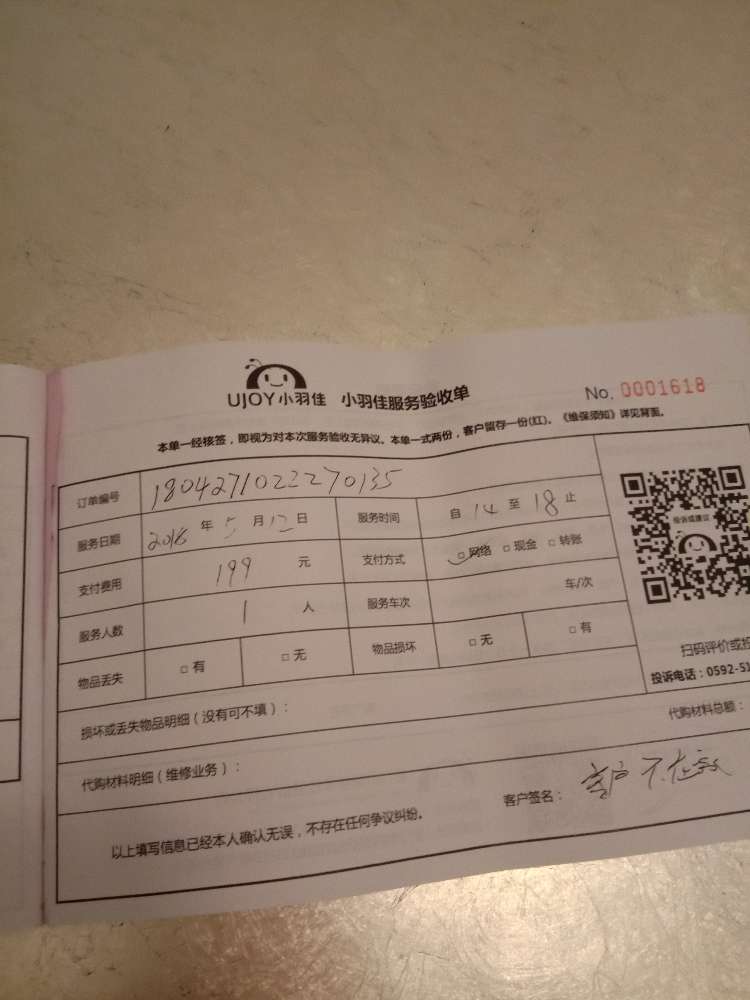 UJOY小羽佳 小羽佳服务验收单 No. 0001618
本单一经核签，即视为对本次服务验收无异议。本单一式两份，客户留存一份(红)。《维保须知》详见背面。
订单编号 1804271022270135
服务日期 2018 年 5 月 12 日 服务时间 自 14 至 18 止
支付费用 199 元 支付方式 □ 网络 □ 现金 □ 转账
服务人数 1 人 服务车次 车/次
物品丢失 □ 有 □ 无 物品损坏 □ 无 □ 有
投诉或建议
扫码评价或投
投诉电话：0592-51
损坏或丢失物品明细（没有可不填）：
代购材料明细（维修业务）： 代购材料总额：
以上填写信息已经本人确认无误，不存在任何争议纠纷。 客户签名： 客户不在家